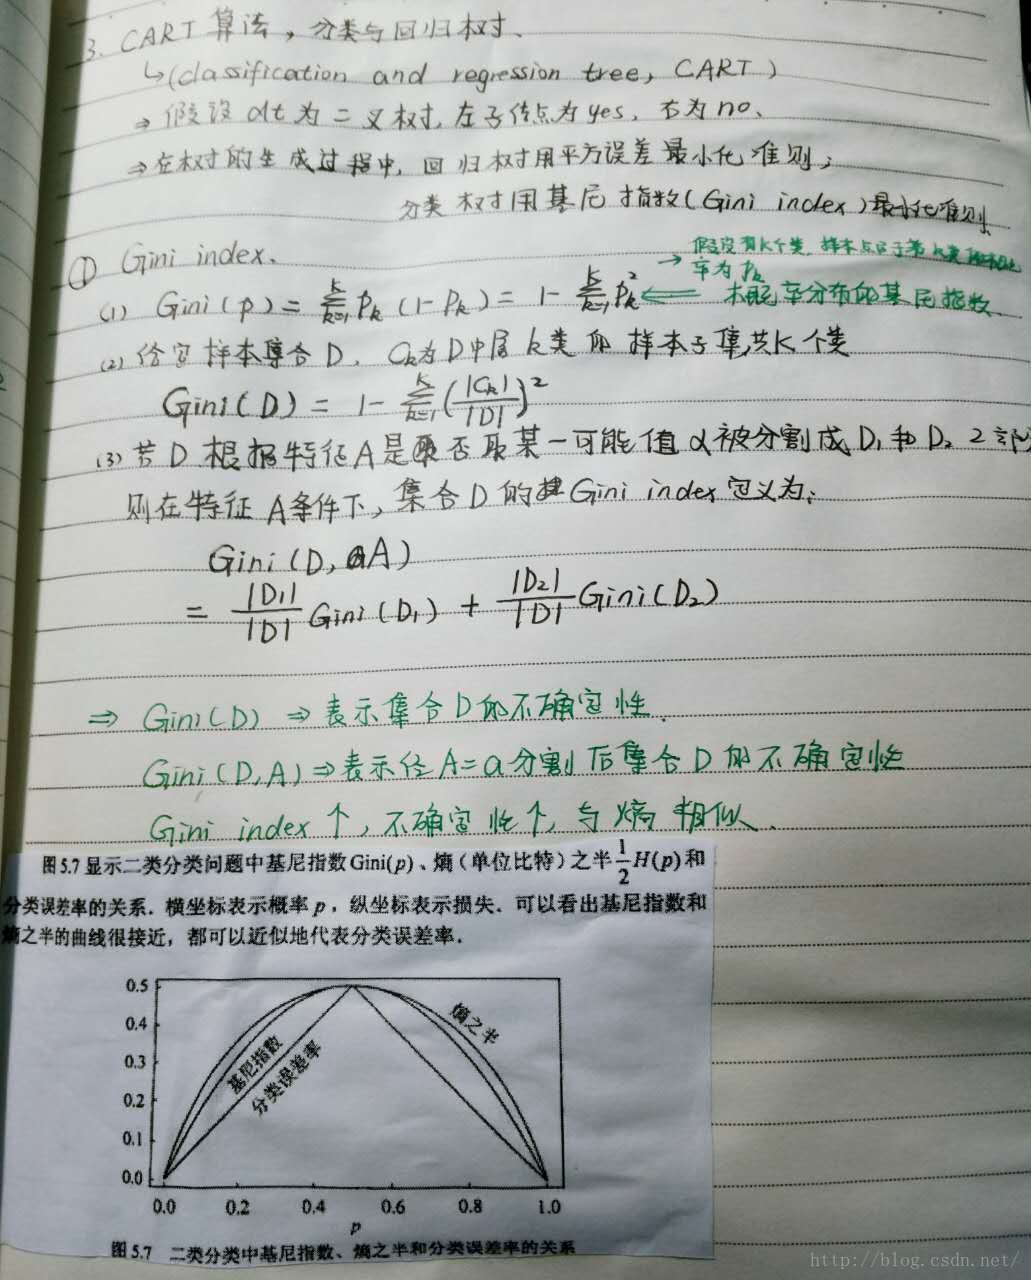 3. CART 算法，分类与回归树、
↳(classification and regression tree, CART)
⇒ 假设dt为二叉树，左子结点为yes，右为no、
⇒在树的生成过程中，回归树用平方误差最小化准则；
分类树用基尼指数(Gini index)最小化准则
① Gini index、
→ 假设有K个类，样本点属于第k类的概
率为 Pk
(1) Gini(p) = \sum_{k=1}^{K} P_k (1-P_k) = 1 - \sum_{k=1}^{K} P_k^2 ⇐ 概率分布的基尼指数、
(2) 给定样本集合D，Ck为D中属k类的样本子集,共K个类
Gini(D) = 1 - \sum_{k=1}^{K} (|Ck|/|D|)^2
(3) 若D根据特征A是否取某一可能值α被分割成D1和D2 2部
则在特征A条件下，集合D的Gini index定义为：
Gini(D, A)
= |D1|/|D| Gini(D1) + |D2|/|D| Gini(D2)
⇒ Gini(D) ⇒ 表示集合D的不确定性.
Gini(D,A) ⇒表示经A=a分割后集合D的不确定性
Gini index ↑，不确定性↑，与熵相似、
图5.7 显示二类分类问题中基尼指数Gini(p)、熵（单位比特）之半 1/2 H(p)和
分类误差率的关系．横坐标表示概率 p，纵坐标表示损失．可以看出基尼指数和
熵之半的曲线很接近，都可以近似地代表分类误差率．
0.5
0.4
0.3
0.2
0.1
0.0
熵之半
基尼指数
分类误差率
0.0 0.2 0.4 0.6 0.8 1.0
p
图5.7 二类分类中基尼指数、熵之半和分类误差率的关系
http://blog.csdn.net/